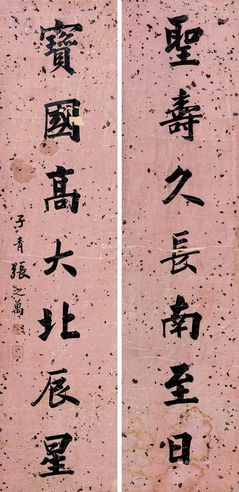 聖壽久長南至日
寶國高大北辰星
子青張之萬